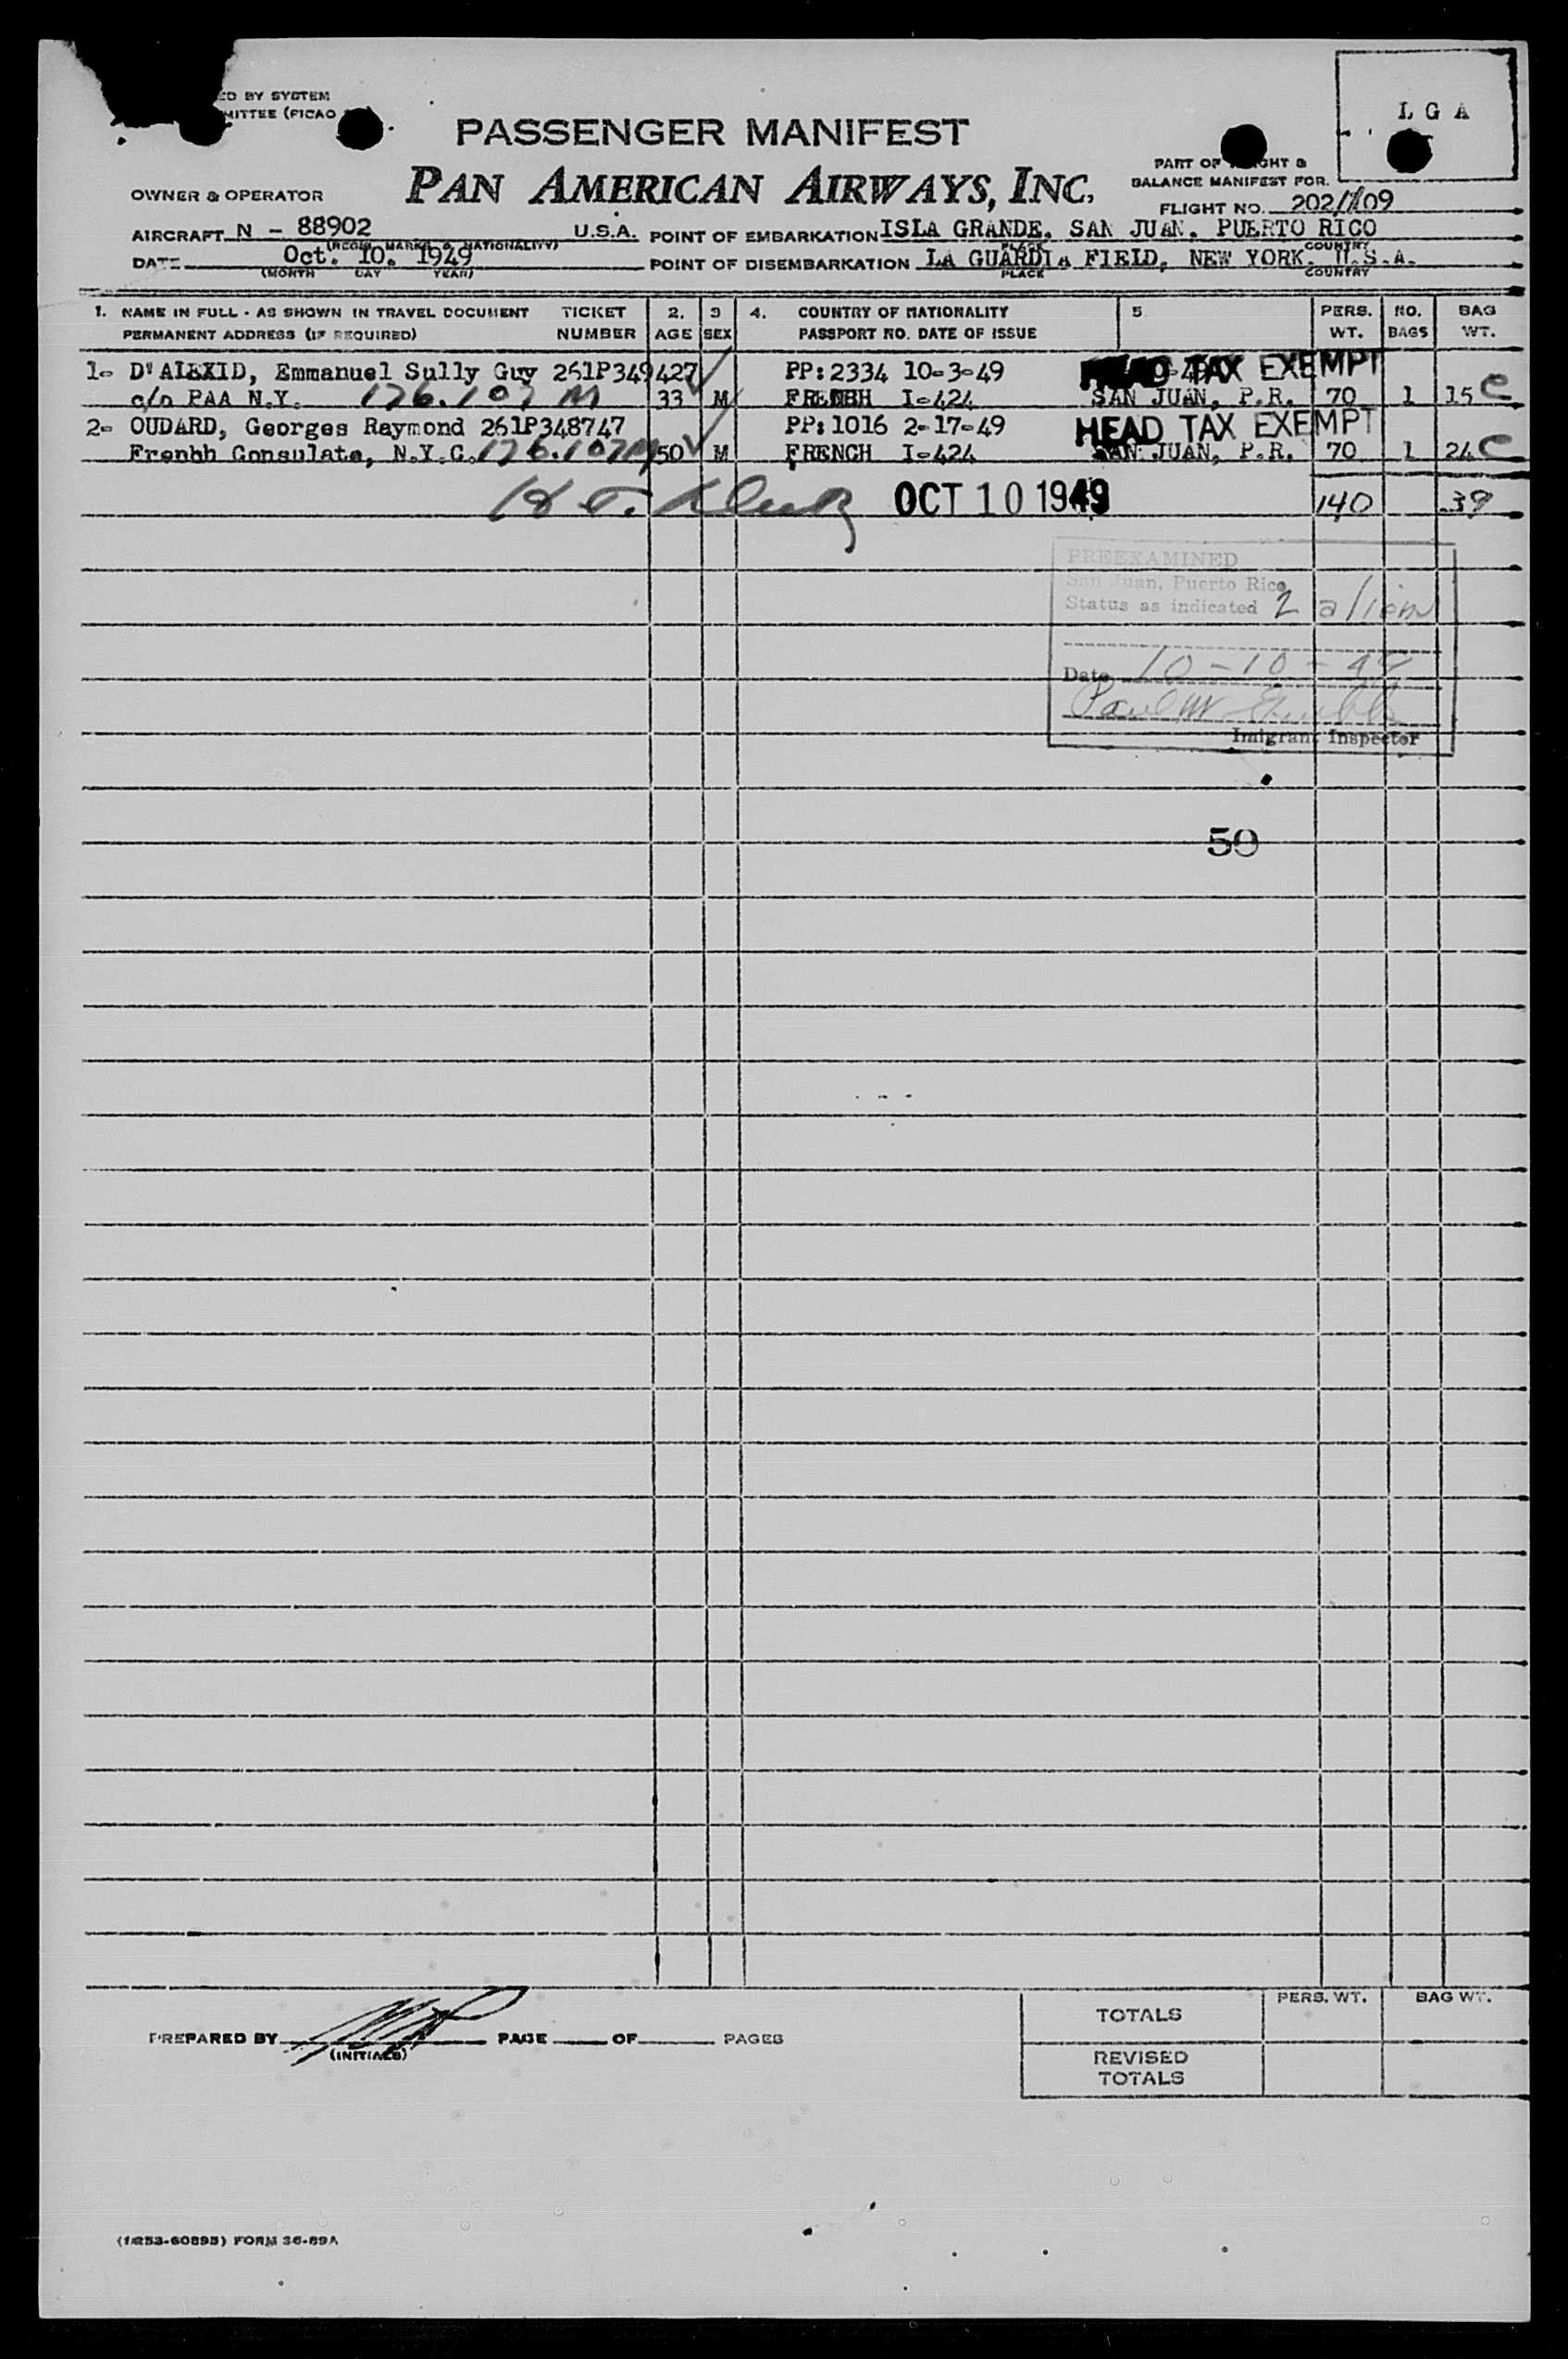 ED BY SYSTEM
MITTEE (PICAO
L G A
PASSENGER MANIFEST
PAN AMERICAN AIRWAYS, INC.
PART OF GHT &
BALANCE MANIFEST FOR.
OWNER & OPERATOR
FLIGHT NO. 202/109
AIRCRAFT N - 88902 U.S.A. POINT OF EMBARKATION ISLA GRANDE, SAN JUAN, PUERTO RICO
(REGIS. MARKS & NATIONALITY) PLACE COUNTRY
DATE Oct. 10. 1949 POINT OF DISEMBARKATION LA GUARDIA FIELD, NEW YORK. U.S.A.
(MONTH DAY YEAR) PLACE COUNTRY
1. NAME IN FULL - AS SHOWN IN TRAVEL DOCUMENT TICKET 2. 3 4. COUNTRY OF NATIONALITY 5 PERS. NO. BAG
PERMANENT ADDRESS (IF REQUIRED) NUMBER AGE SEX PASSPORT NO. DATE OF ISSUE WT. BAGS WT.
1- D'ALEXID, Emmanuel Sully Guy 261P349427 PP:2334 10-3-49 HEAD TAX EXEMPT
c/o PAA N.Y. 176.107 M 33 M FRENBH I-424 SAN JUAN, P.R. 70 1 15 C
2- OUDARD, Georges Raymond 261P348747 PP:1016 2-17-49 HEAD TAX EXEMPT
Frenbh Consulate, N.Y.C. 176.107M 50 M FRENCH I-424 SAN JUAN, P.R. 70 1 24 C
OCT 10 1949 140 39
PREEXAMINED
San Juan, Puerto Rico
Status as indicated 2 alien
Date 10-10-49
Paul W
Imigrant Inspector
50
PREPARED BY PAGE OF PAGES
(INITIALS)
PERS. WT. BAG WT.
TOTALS
REVISED
TOTALS
(1253-60895) FORM 36-89A